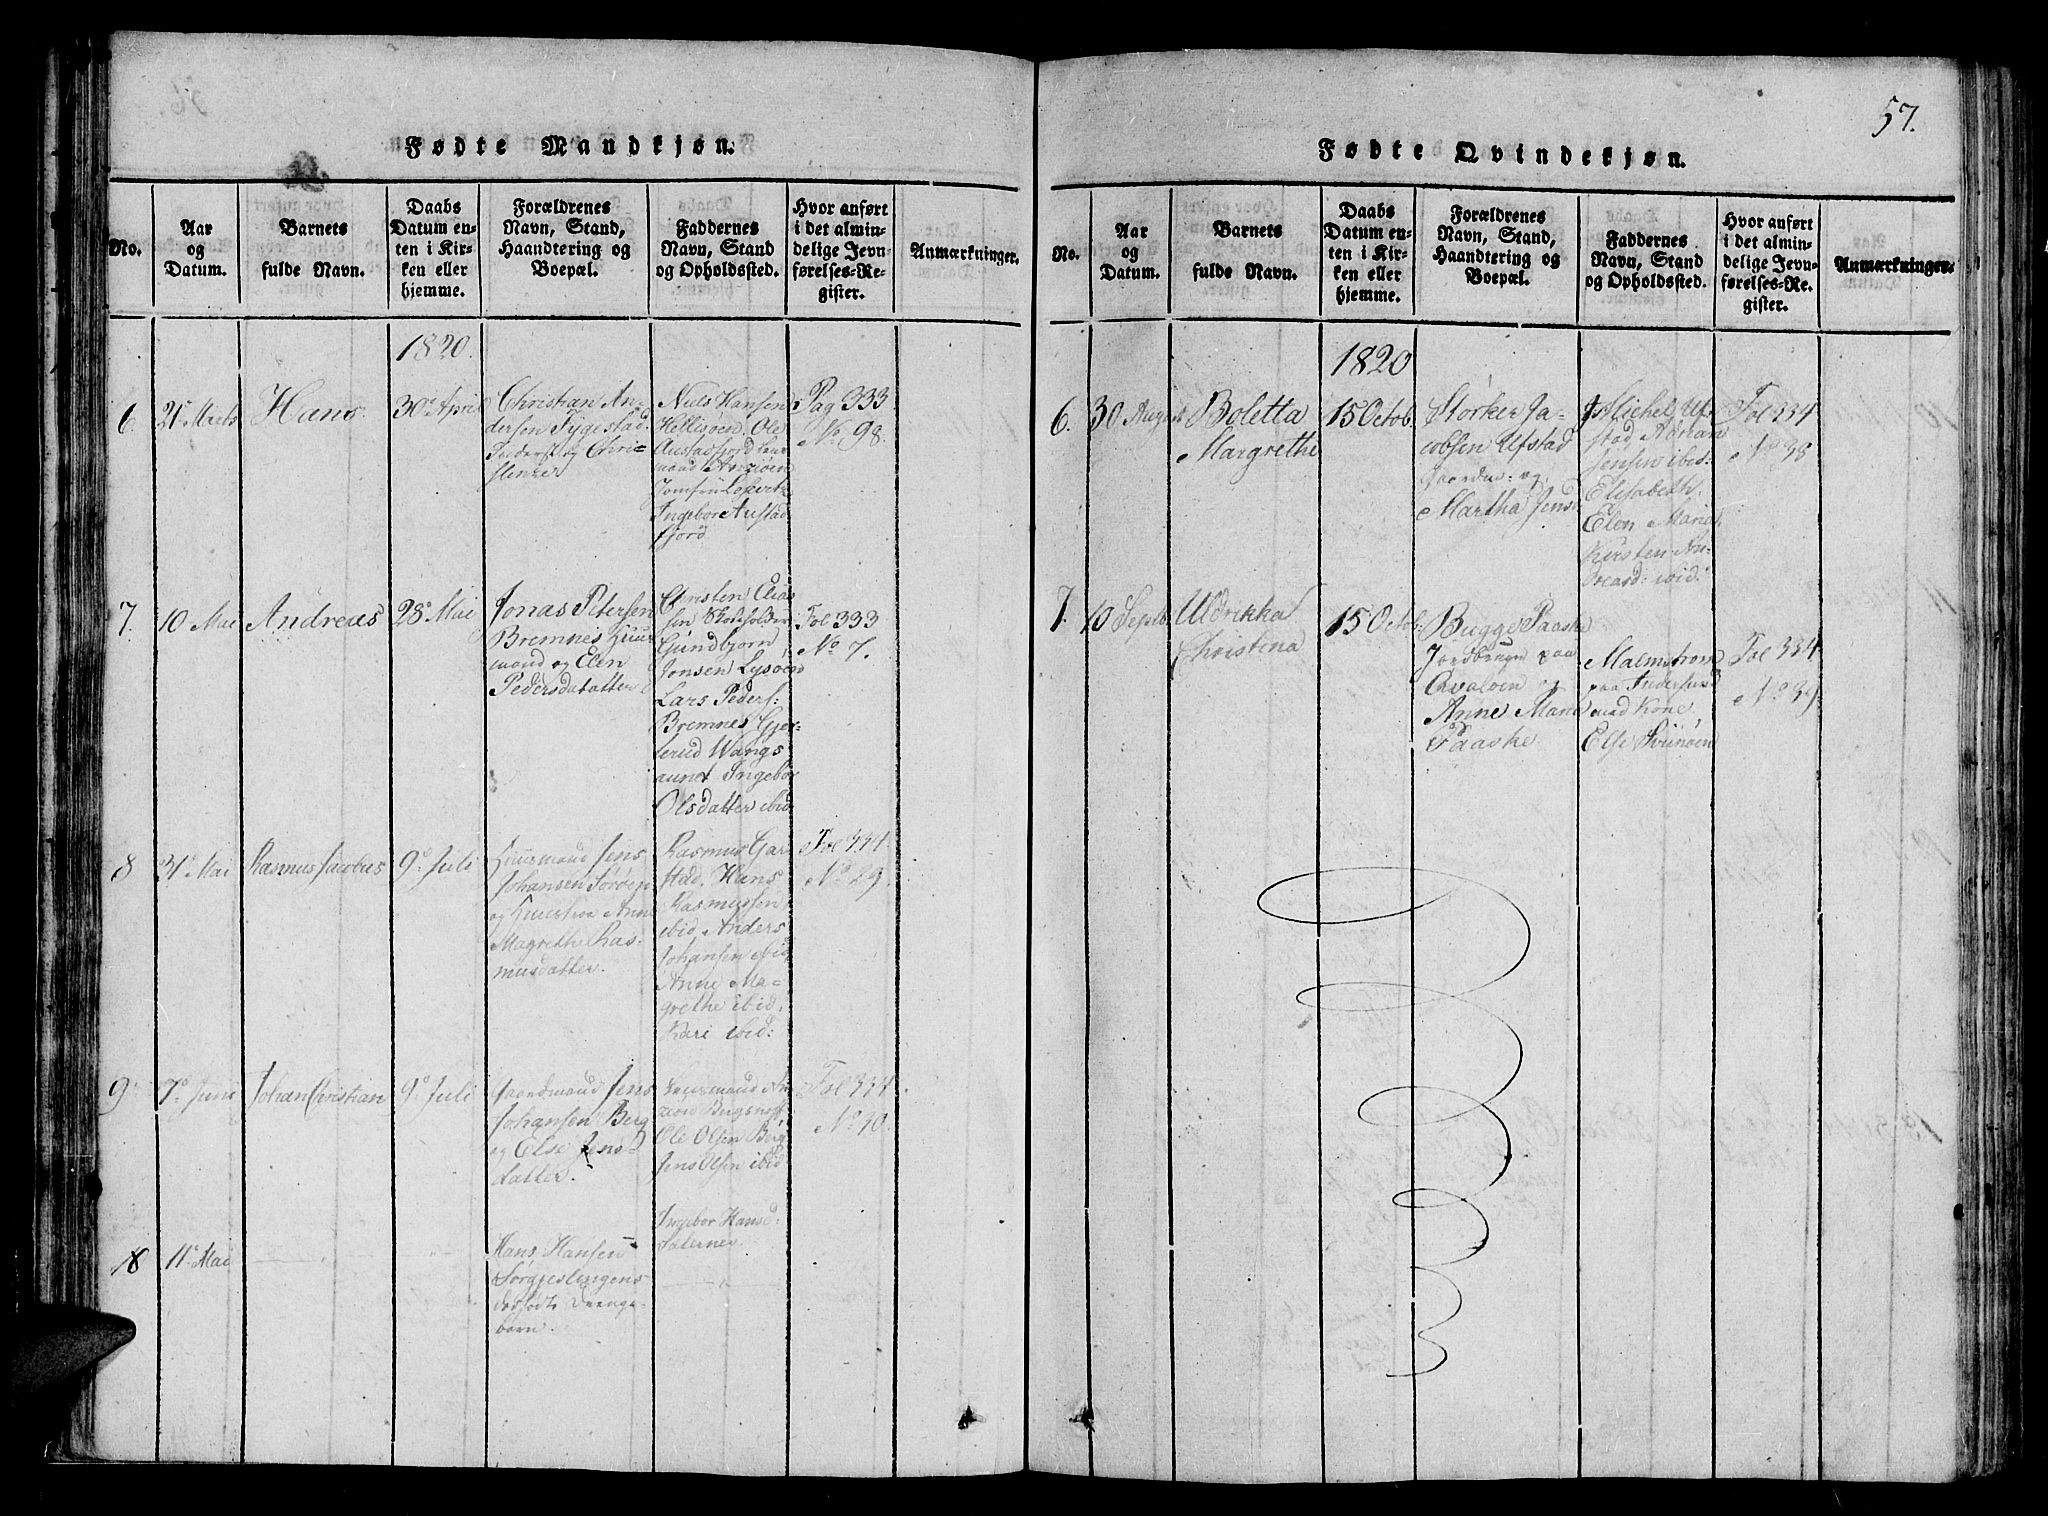 57.
Fødte Mandkjøn.
No.
Aar
og
Datum.
Barnets
fulde Navn.
Daabs
Datum en-
ten i Kir-
ken eller
hjemme.
Forældrenes
Navn, Stand,
Haandtering og
Boepæl.
Faddernes
Navn, Stand
og Opholdssted.
Hvor anført
i det almin-
delige Jevn-
førelses-Re-
gister.
Anmærkninger.
1820.
6.
21 Marts
Hans
30 April
Christian An-
dersen Tygestad
og Chri-
Niels Hansen
Hellisøen. Ole
Austadfjord
Jomfru
Ingebor Austad
fjord
Pag 333
No 98.
7.
10 Mai
Andreas
28 Mai
Jonas Petersen
Bremnes Huus
mand og Elen
Pedersdatatter
Christen Elias
sen
Gundbjorn
Jonsen Lysøen
Lars Peders:
Bremnes Gjer-
terud Wangs
aunet Ingebor
Olsdatter ibid
Fol 333
No 7.
8
31 Mai
Rasmus Jacobus
9 Juli
Huusmand Jens
Johansen Sørøen
og Huustroe Anne
Magrethe Ras-
musdatter.
Rasmus Gar
stad. Hans
Rasmussen
ibid Anders
Johansen ibid
Anne Ma-
grethe ibid.
Kari ibid:
Fol 334
No 29
9
7 Juni
Johan Christian
9 Juli
Gaardmand Jens
Johansen Berg
og Else Jens-
datter.
Ole Olsen Berg
Jens Olsen ibid
Ingebor Hansd:
Fol 334
No 30.
11 Mai
Hans Hansen
Sørgjeslingens
dødfødte Drenge-
barn.
Fødte Qvindekjøn.
No.
Aar
og
Datum.
Barnets
fulde Navn.
Daabs
Datum en-
ten i Kir-
ken eller
hjemme.
Forældrenes
Navn, Stand,
Haandtering og
Boepæl.
Faddernes
Navn, Stand
og Opholdssted.
Hvor anført
i det almin-
delige Jevn-
førelses-Re-
gister.
Anmærkninger.
1820
6.
30 August
Boletta
Margrethe
15 Octob.
Størker Ja-
cobsen Ufstad
og
Martha Jens
Michel Uf
stad, Adrian
Jensen ibid:
Elisabeth.
Elen Maria
Kirsten An-
dreasd: ibid:
Fol 334
No 38
7.
10 Septb
Uldrikka
Christina
15 Octob:
Bugge Paaske
Jordbruger paa
Qvaløen og
Anne Marie
Paaske
Malmstrom
paa
med Kone
Else Svinøen
Fol 334
No 39